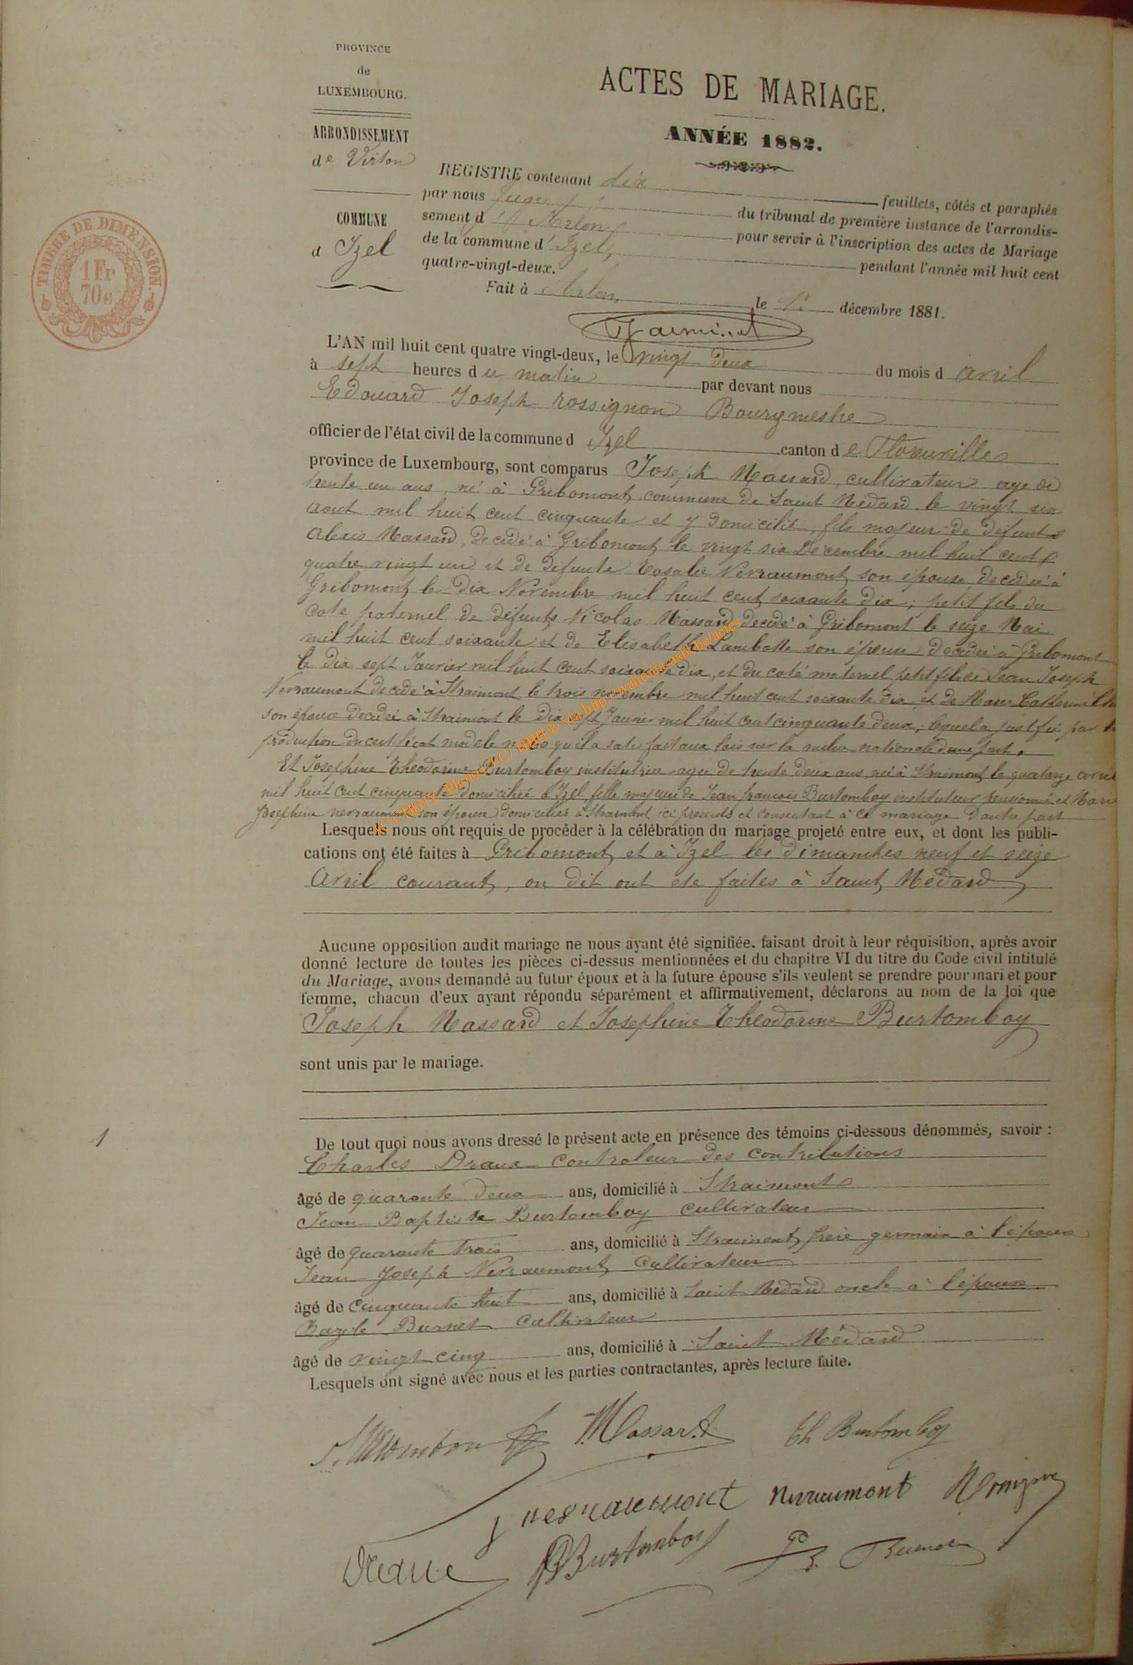 PROVINCE
de
LUXEMBOURG.
ARRONDISSEMENT
de Virton
COMMUNE
d Izel
TIMBRE DE DIMENSION
1 Fr
70 c
ACTES DE MARIAGE.
ANNÉE 1882.
REGISTRE contenant dix feuillets, côtés et paraphés
par nous Juge du tribunal de première instance de l'arrondis-
sement d' Arlon pour servir à l'inscription des actes de Mariage
de la commune d' Izel, pendant l'année mil huit cent
quatre-vingt-deux.
Fait à Arlon, le décembre 1881.
L'AN mil huit cent quatre vingt-deux, le vingt deux du mois d avril
à sept heures du matin par devant nous
Edouard Joseph Rossignon Bourgmestre
officier de l'état civil de la commune d Izel canton de Florenville
province de Luxembourg, sont comparus Joseph Massard, cultivateur age de
trente un ans, né à Gribomont commune de Saint Médard le vingt six
aout mil huit cent cinquante et y domicilié, fils majeur de défunts
Alexis Massard, décédé à Gribomont le vingt six Décembre mil huit cent
quatre vingt un et de défunte Rosalie Nerraumont son épouse décédée à
Gribomont le dix Novembre mil huit cent soixante dix; petit fils du
coté paternel de défunts Nicolas Massard décédé à Gribomont le seize Mai
mil huit cent soixante et de Elisabeth Lambotte son épouse décédée à Gribomont
le dix sept Janvier mil huit cent soixante dix, et du coté maternel petit fils de Jean Joseph
Nerraumont décédé à Straimont le trois novembre mil huit cent soixante dix et de Marie Catherine
son épouse décédée à Straimont le dix sept Janvier mil huit cent cinquante deux, lequel a justifié par la
production du certificat modèle qu'il a satisfait aux lois sur la milice nationale d'une part.
Et Josephine Théodorine Burtomboy institutrice agée de trente deux ans, née à Straimont le quatorze
mil huit cent cinquante domiciliée à Izel, fille majeure de Jean François Burtomboy instituteur pensionné et Marie
Josephine Nerraumont son épouse domiciliés à Straimont ici présents et consentant à ce mariage D'autre part
Lesquels nous ont requis de procéder à la célébration du mariage projeté entre eux, et dont les publi-
cations ont été faites à Gribomont et à Izel les dimanches neuf et seize
avril courant, on dit ont été faites à Saint Médard
Aucune opposition audit mariage ne nous ayant été signifiée. faisant droit à leur réquisition, après avoir
donné lecture de toutes les pièces ci-dessus mentionnées et du chapitre VI du titre du Code civil intitulé
du Mariage, avons demandé au futur époux et à la future épouse s'ils veulent se prendre pour mari et pour
femme, chacun d'eux ayant répondu séparément et affirmativement, déclarons au nom de la loi que
Joseph Massard et Josephine Théodorine Burtomboy
sont unis par le mariage.
1
De tout quoi nous avons dressé le présent acte en présence des témoins ci-dessous dénommés, savoir :
Charles Draux controleur des contributions
âgé de quarante deux ans, domicilié à Straimont
Jean Baptiste Burtomboy cultivateur
âgé de quarante trois ans, domicilié à Straimont, frère germain à l'épouse
Jean Joseph Nerraumont cultivateur
âgé de cinquante huit ans, domicilié à Saint Médard oncle à l'époux
Bazyle Burnet cultivateur
âgé de vingt cinq ans, domicilié à Saint Médard
Lesquels ont signé avec nous et les parties contractantes, après lecture faite.
J. Massard Th Burtomboy
Nerraumont
Burtomboy